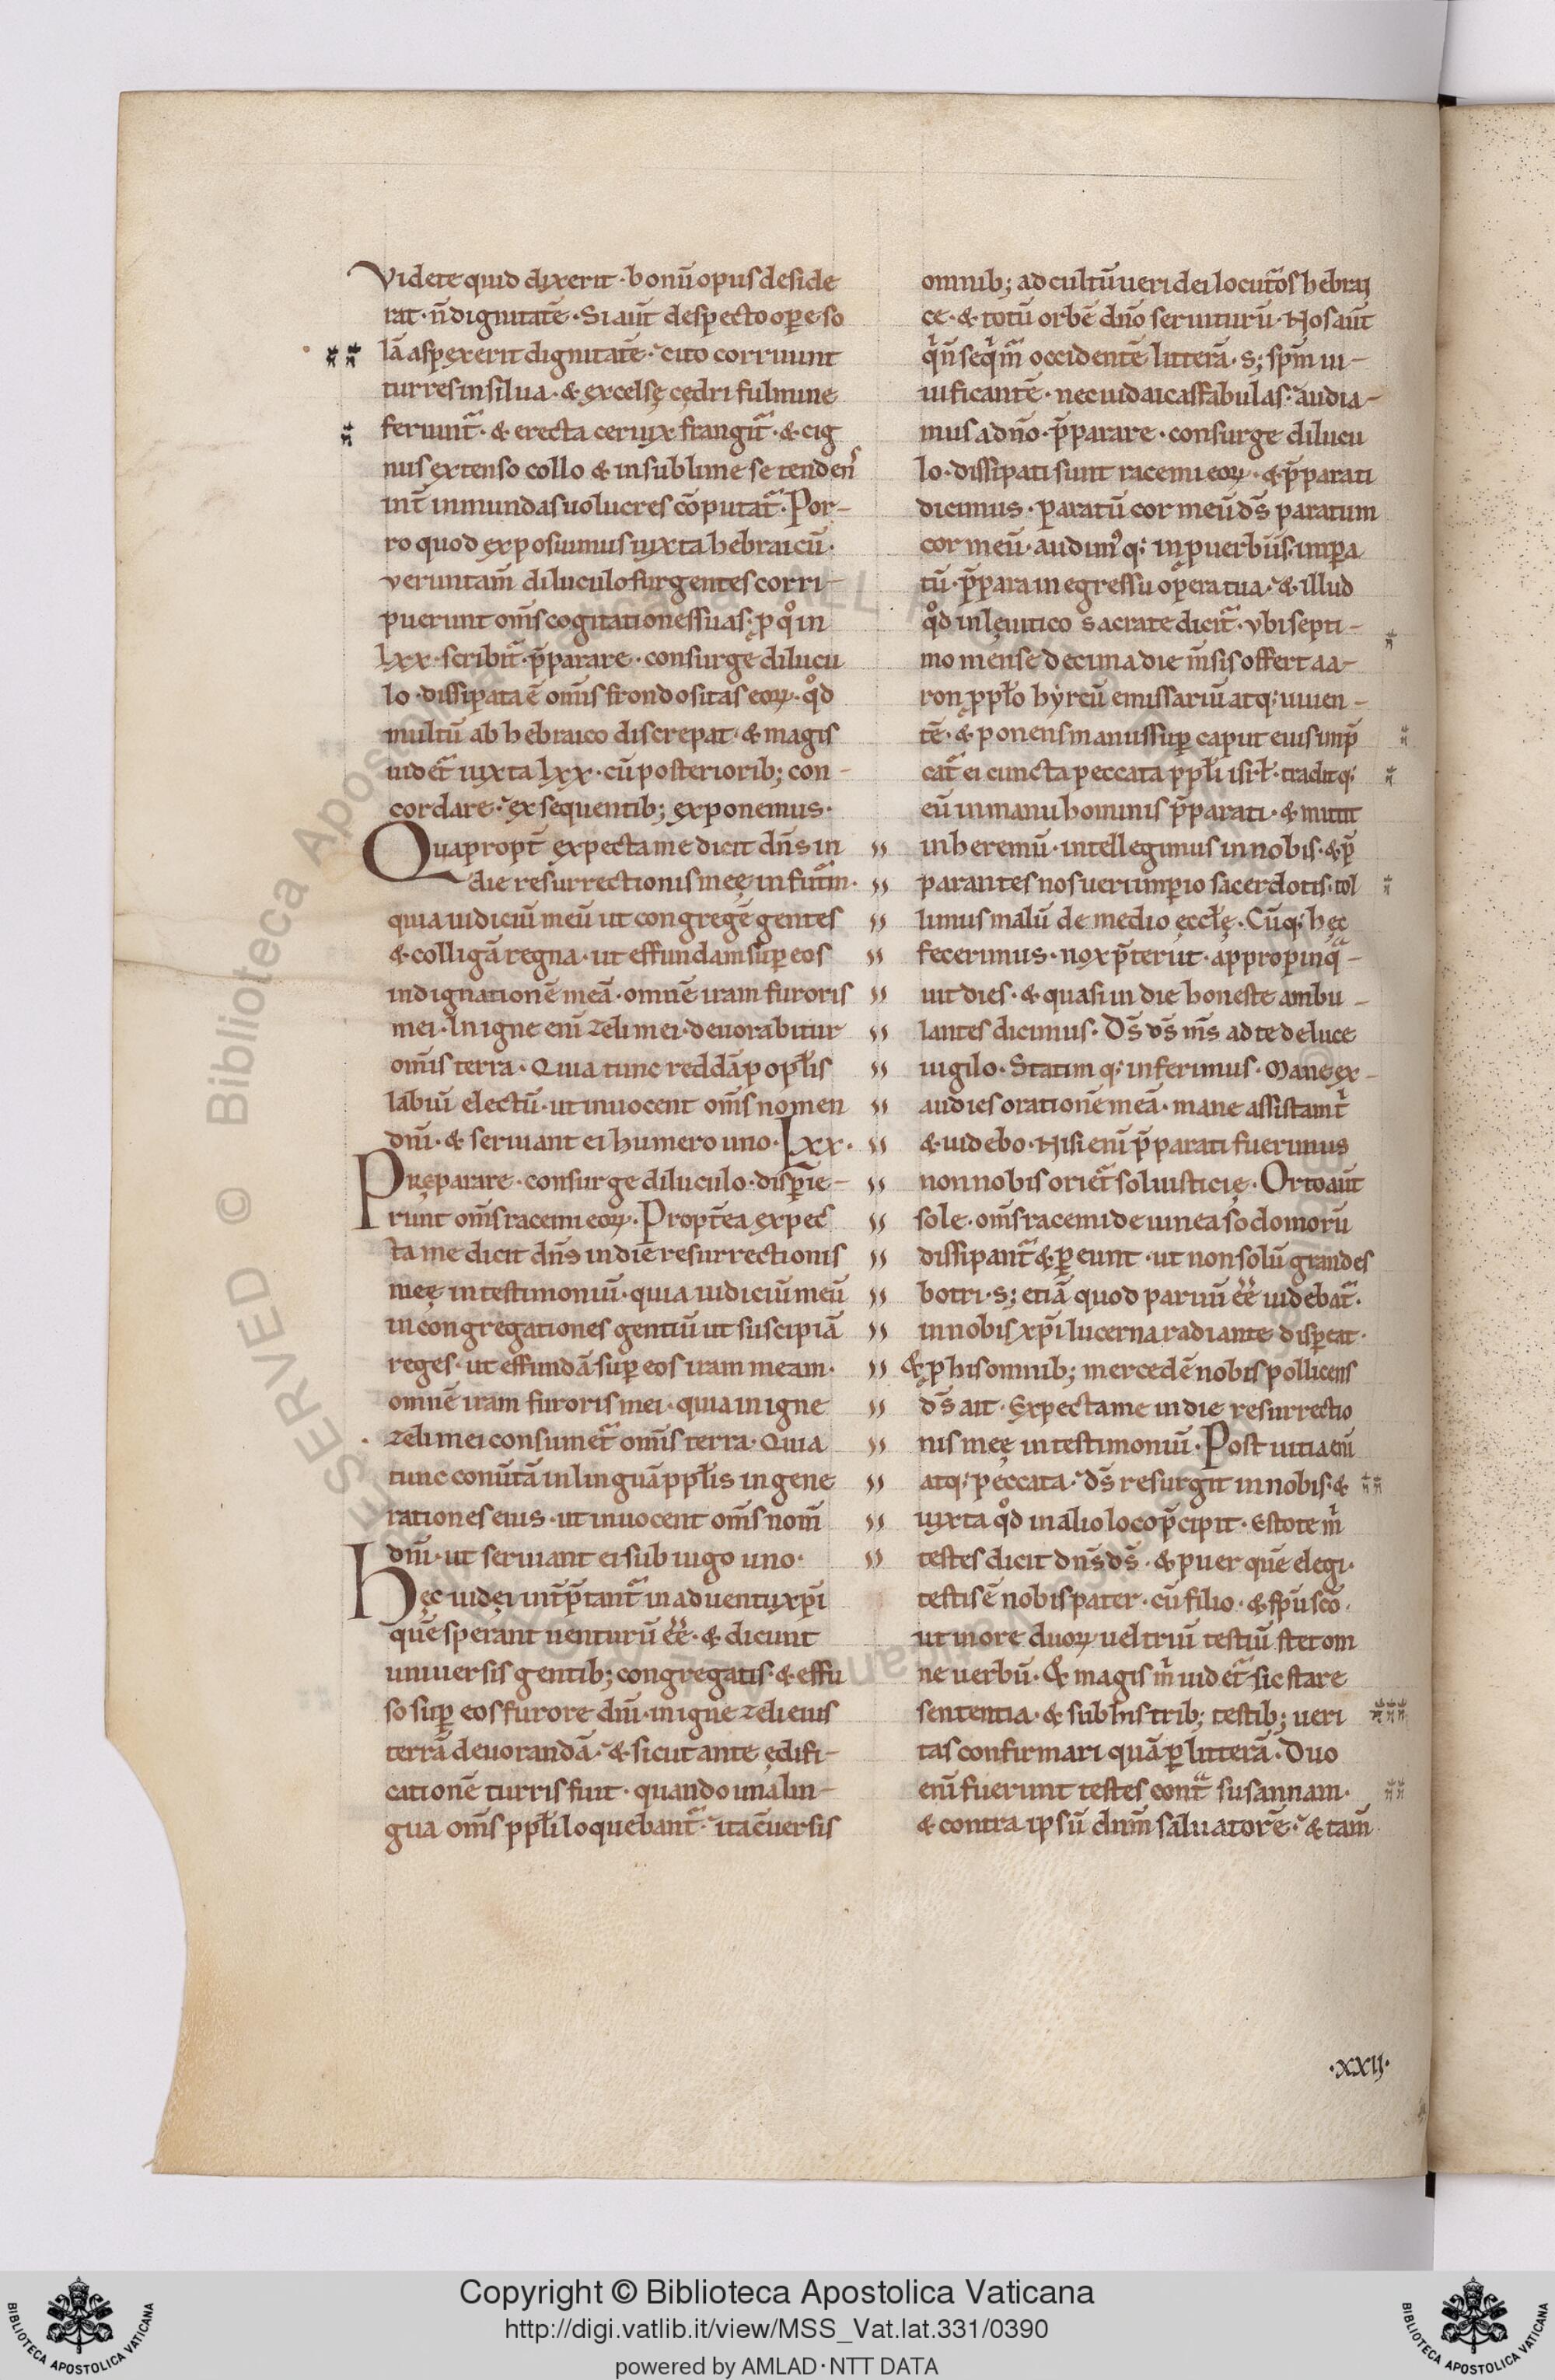 Videte quid dixerit · bonū opus deside
rat · n̄ dignitatē · Si aut̄ despecto oꝑe so
lā aspexerit dignitatē · cito corruunt
turres in silua · & excelsę cędri fulmine
feriunt᷑ · & erecta ceruix frangit᷑ · & cig
nus extenso collo & in sublime se tendens
int̄ inmundas uolucres cōputat᷑ · Por-
ro quod exposuimus iuxta hebraicū ·
veruntam̄ diluculo surgentes corri-
puerunt om̄s cogitationes suas · ꝓ qͦ in
lxx · scribit᷑ · p̄parare · consurge dilucu
lo · dissipata ē om̄is frondositas eoꝝ · qͦd
multū ab hebraico discrepat · & magis
uidet᷑ iuxta lxx · cū posteriorib; con-
cordare · ex sequentib; exponemus ·
Quapropt̄ expecta me dicit dn̄s in
die resurrectionis meę in futm̄ ·
quia iudiciū meū ut congregē gentes
& colligā regna · ut effundam suꝑ eos
indignationē meā · omnē iram furoris
mei · In igne enī zeli mei · deuorabitur
om̄is terra · Quia tunc reddā popłis
labiū electū · ut inuocent om̄s nomen
dn̄i · & seruiant ei humero uno · Lxx ·
Pręparare · consurge diluculo · disꝑie-
runt om̄s racemi eoꝝ · Propt̄ea expec
ta me dicit dn̄s in diē resurrectionis
meę in testimoniū · quia iudiciū meū
in congregationes gentiū ut suscipiā
reges · ut effundā suꝑ eos iram meam ·
omnē iram furoris mei · quia in igne
zeli mei consumet᷑ om̄is terra · Quia
tunc conūtā in linguā ppłis in gene
rationes eius · ut inuocent om̄s nom̄
dn̄i · ut seruiant ei sub iugo uno ·
Hęc iudęi int̄p̄tant᷑ in aduentu xp̄i
quē sperant uenturū ēē · & dicunt
uniuersis gentib; congregatis · & effu
so suꝑ eos furore dn̄i · in igne zeli eius
terrā deuorandā · & sicut ante ędifi-
cationē turris fuit · quando una lin-
gua om̄s ppłi loquebant᷑ · ita cūersis
omnib; ad cultū ueri dei locut᷑os hebrai
ce · & totū orbē dn̄o seruiturū · Nos aut̄
qͥ n̄ seqͥm᷑ occidentē litterā · s; sp̄m ui-
uificantē · nec iudaicas fabulas · audia-
mus a dn̄o · p̄parare · consurge dilucu
lo · dissipati sunt racemi eoꝝ · & p̄parati
dicimus · paratū cor meū ds̄ paratum
cor meū · audim᷒q; in ꝓuerbiis · inpa
tū · p̄para in egressu oꝑa tua · & illud
qͦd in leuitico sacrate dicit᷑ · vbi septi-
mo mense decima die m̄sis offert aa-
ron ꝓ ppło hyrcū emissariū atq; uiuen-
tē · & ponens manus suꝑ caput eius imp̄
cat᷑ ei cuncta peccata ppłi isrł · traditq;
eū in manu hominis p̄parati · & mittit
in heremū · intellegimus in nobis · & p̄
parantes nos ueri imꝑio sacerdotis · tol
limus malū de medio ęccłę · Cūq; hęc
fecerimus · nox p̄terit · appropinqͣ-
uit dies · & quasi in die honeste ambu-
lantes dicimus · Ds̄ ds̄ ms̄ ad te de luce
uigilo · Statimq; inferimus · Mane ex-
audies orationē meā · mane assistam tͥ
& uidebo · Nisi enī p̄parati fuerimus
non nobis oriet᷑ sol iusticię · Orto aut̄
sole · om̄s racemi de uinea sodomorū
dissipant᷑ & ꝑeunt · ut non solū grandes
botri · s; etiā quod paruū ēē uidebat᷑ ·
in nobis xp̄i lucerna radiante disꝑeat ·
& ꝓ his omnib; mercedē nobis pollicens
ds̄ ait · Expecta me in die resurrectio
nis meę in testimoniū · Post uitia enī
atq; peccata · ds̄ resurgit in nobis · &
iuxta qͦd in alio loco p̄cipit · Estote mͥ
testes dicit dn̄s ds̄ · & puer quē elegi ·
testis ē nobis pater · cū filio · & sp̄u sc̄o ·
ut in ore duoꝝ uel triū testiū stet om
ne uerbū · & magis mͥ uidet᷑ sic stare
sententia · & sub his trib; testib; ueri
tas confirmari quā ꝑ litterā · Duo
enī fuerunt testes contͣ susannam ·
& contra ipsū dn̄m saluatorē · & tam̄
·xxij·
Copyright © Biblioteca Apostolica Vaticana
http://digi.vatlib.it/view/MSS_Vat.lat.331/0390
powered by AMLAD·NTT DATA
BIBLIOTECA APOSTOLICA VATICANA
BIBLIOTECA APOSTOLICA VATICANA